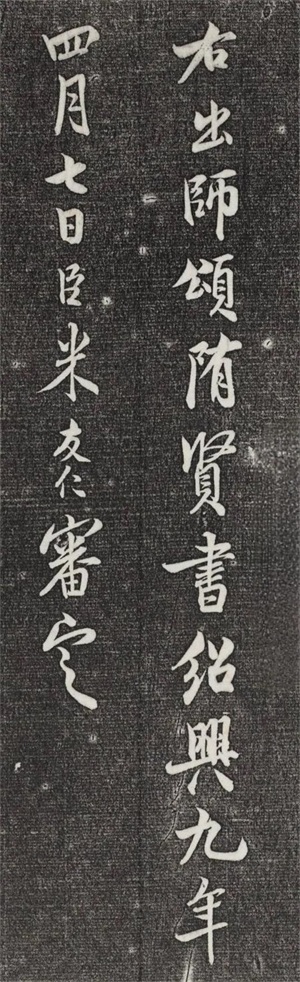 右出師頌隋賢書紹興九年
四月七日臣米友仁審定